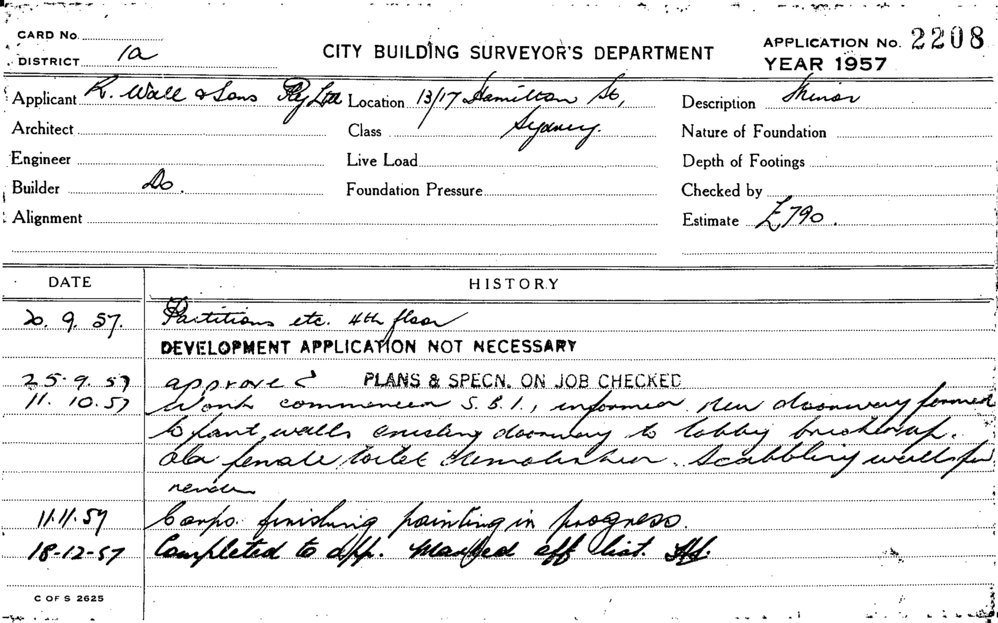 CARD No.
DISTRICT 1a
CITY BUILDING SURVEYOR'S DEPARTMENT
APPLICATION No. 2208
YEAR 1957
Applicant R. Wall & Sons Pty Ltd Location 13/17 Hamilton St, Description Minor
Architect Class Sydney. Nature of Foundation
Engineer Live Load Depth of Footings
Builder Do. Foundation Pressure Checked by
Alignment Estimate £790.
DATE HISTORY
20. 9. 57. Partitions etc. 4th floor
DEVELOPMENT APPLICATION NOT NECESSARY
25-9. 57 approved PLANS & SPECN. ON JOB CHECKED
11. 10. 57 Work commenced S.B.I., informed. New doorway formed
walls existing doorway to lobby brickedup.
Old female toilet demolished. Scabbling walls for
render
11.11.57 Carps. finishing painting in progress.
18-12-57 Completed to app. Marked off list.
C OF S 2625